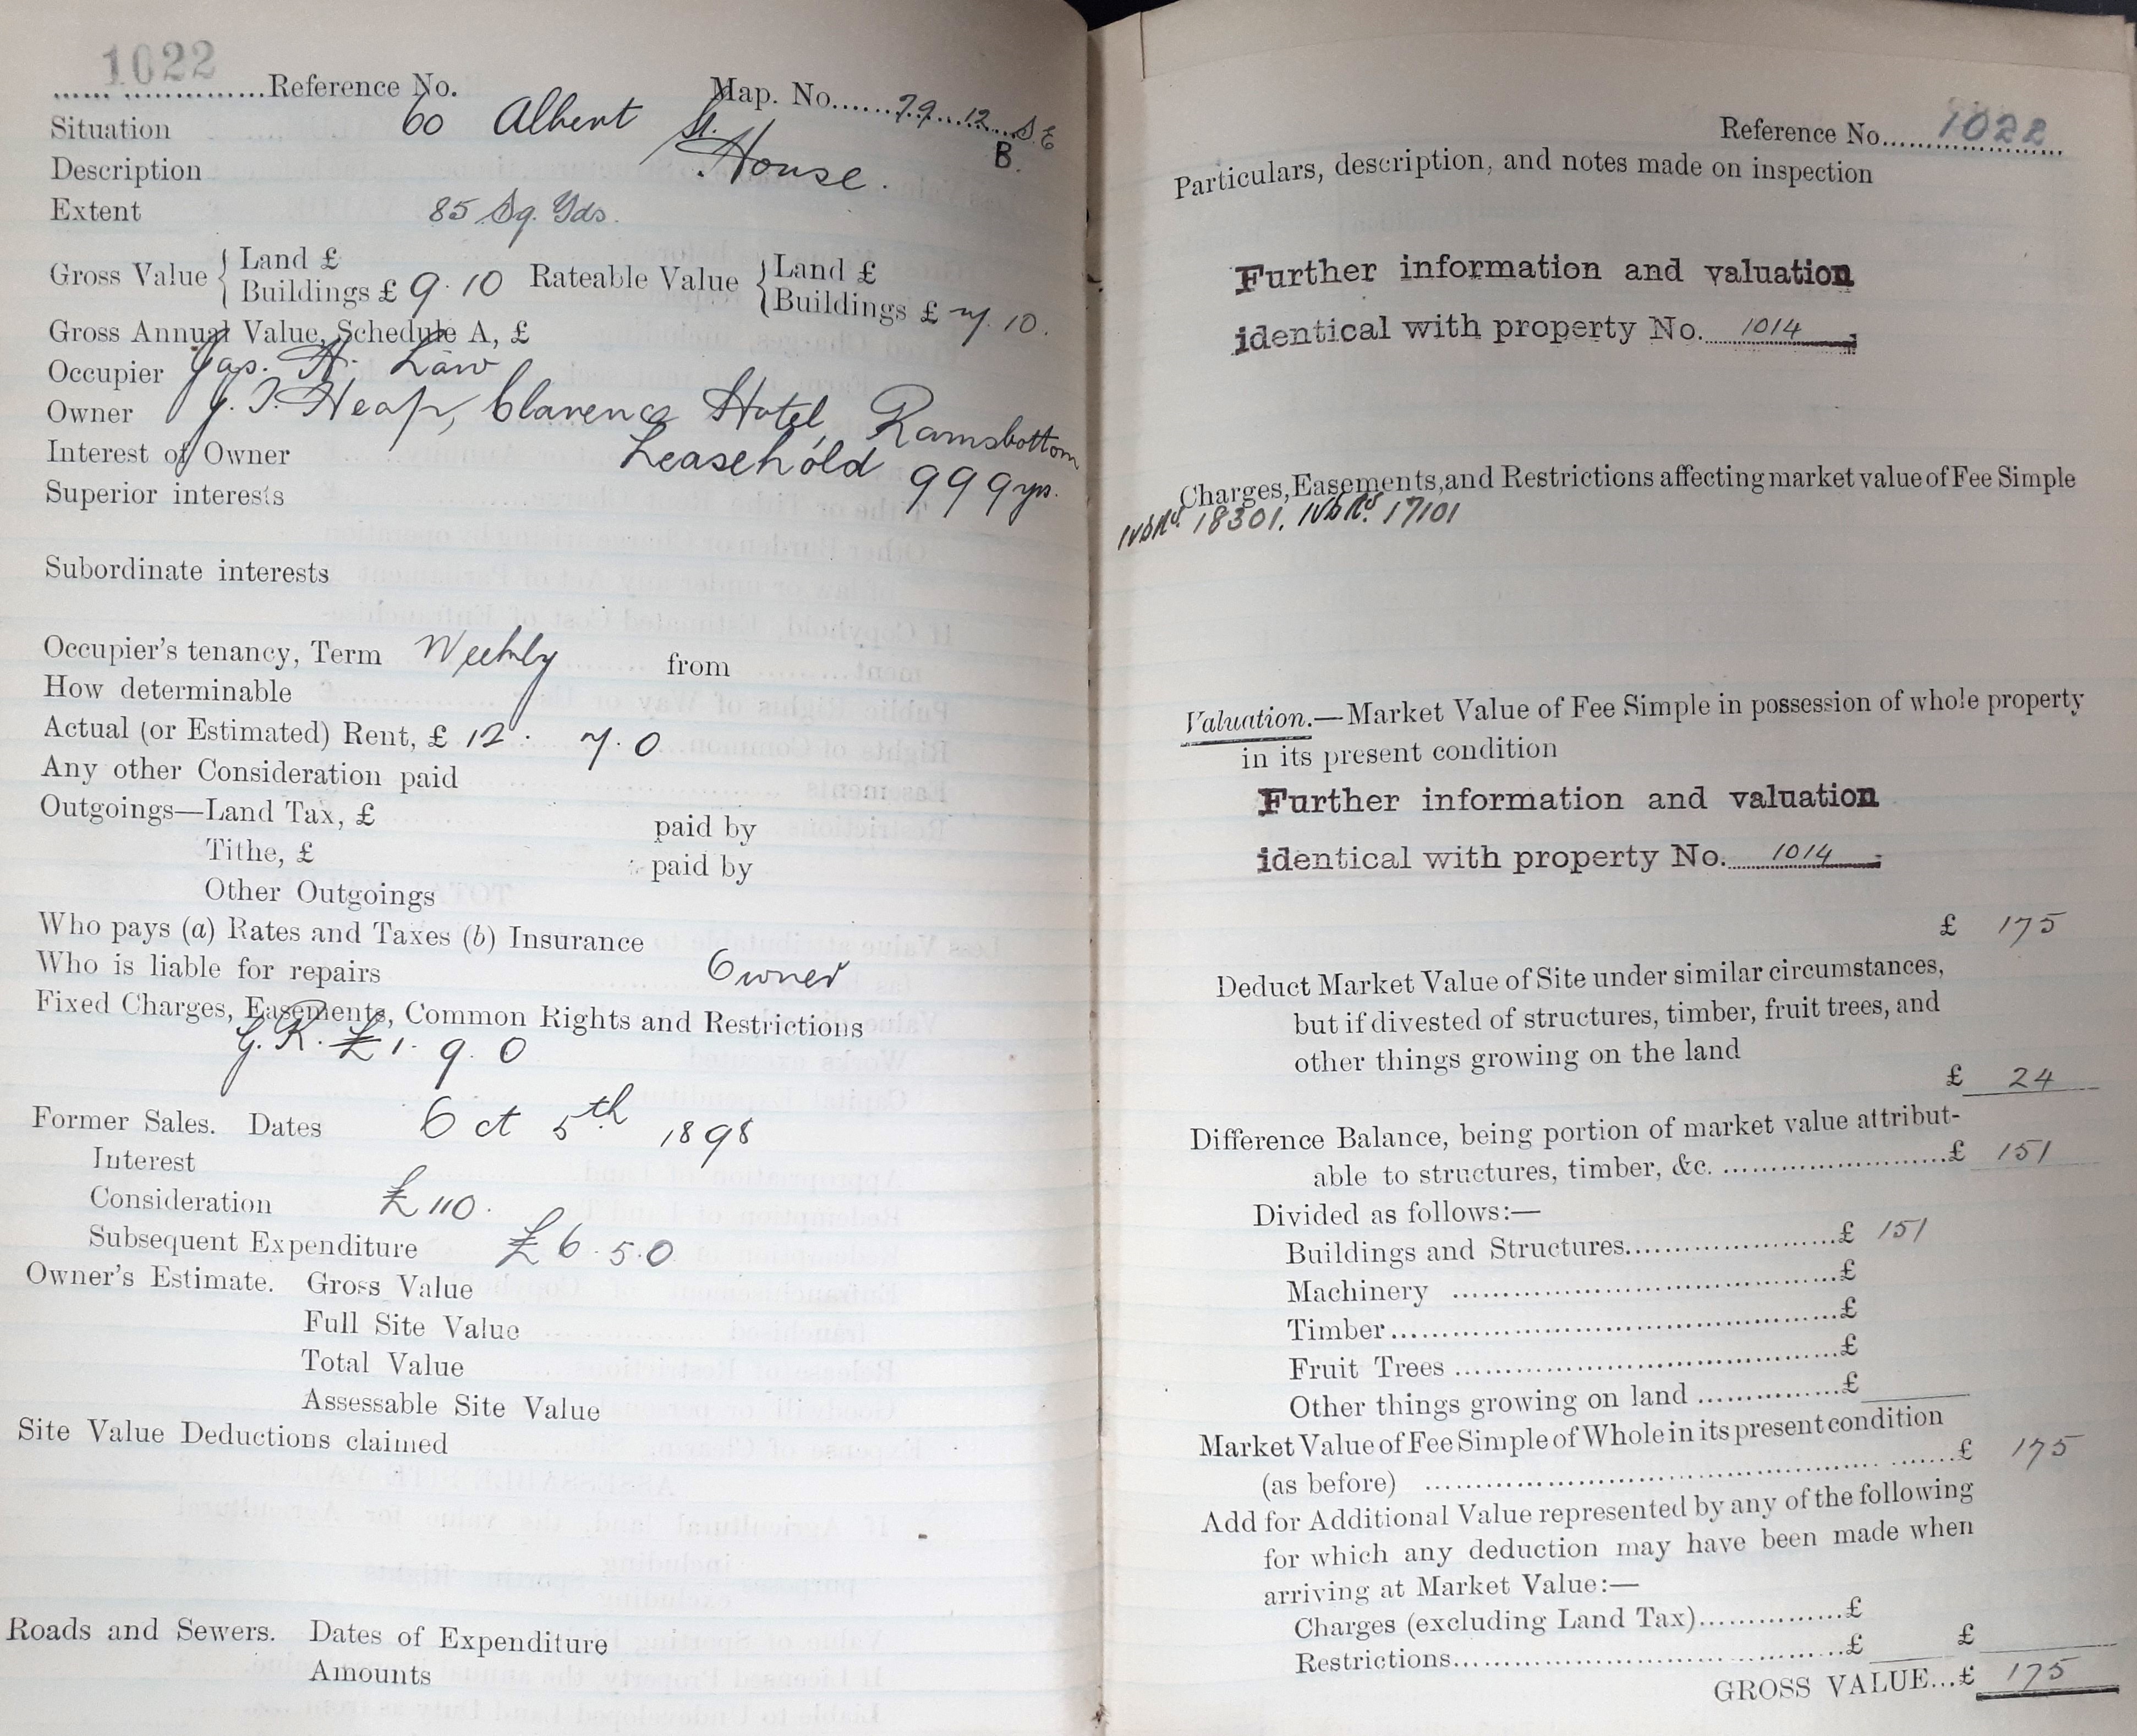 1022
Reference No.
Map. No. 79 12 S.E
B.
Situation 60 Albert St.
Description House.
Extent 85 Sq. Yds.
Gross Value { Land £
Buildings £ 9. 10
Rateable Value { Land £
Buildings £ 7. 10.
Gross Annual Value, Schedule A, £
Occupier Jas. H. Law
Owner J. T. Heap, Clarence Hotel, Ramsbottom
Interest of Owner Leasehold 999 yrs.
Superior interests
Subordinate interests
Occupier's tenancy, Term Weekly from
How determinable
Actual (or Estimated) Rent, £ 12. 7. 0
Any other Consideration paid
Outgoings—Land Tax, £ paid by
Tithe, £ paid by
Other Outgoings
Who pays (a) Rates and Taxes (b) Insurance
Who is liable for repairs Owner
Fixed Charges, Easements, Common Rights and Restrictions
G.R. £1. 9. 0
Former Sales. Dates Oct 5th 1898
Interest
Consideration £110.
Subsequent Expenditure £6. 5. 0
Owner's Estimate. Gross Value
Full Site Value
Total Value
Assessable Site Value
Site Value Deductions claimed
Roads and Sewers. Dates of Expenditure
Amounts
Reference No. 1022
Particulars, description, and notes made on inspection
Further information and valuation
identical with property No. 1014
Charges, Easements, and Restrictions affecting market value of Fee Simple
18301. 17101
Valuation.—Market Value of Fee Simple in possession of whole property
in its present condition
Further information and valuation
identical with property No. 1014
£ 175
Deduct Market Value of Site under similar circumstances,
but if divested of structures, timber, fruit trees, and
other things growing on the land
£ 24
Difference Balance, being portion of market value attribut-
able to structures, timber, &c. £ 151
Divided as follows:—
Buildings and Structures £ 151
Machinery £
Timber £
Fruit Trees £
Other things growing on land £
Market Value of Fee Simple of Whole in its present condition
(as before) £ 175
Add for Additional Value represented by any of the following
for which any deduction may have been made when
arriving at Market Value:—
Charges (excluding Land Tax) £
Restrictions £ £
GROSS VALUE...£ 175